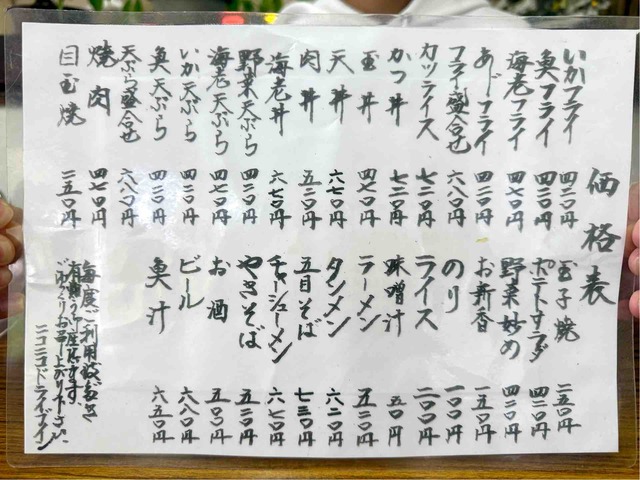 価格表
いかフライ 四二〇円
魚フライ 四二〇円
海老フライ 四七〇円
あじフライ 四二〇円
フライ盛合せ 六八〇円
カツライス 七二〇円
かつ丼 七二〇円
玉丼 四七〇円
天丼 六七〇円
肉丼 五二〇円
海老丼 六七〇円
野菜天ぷら 四二〇円
海老天ぷら 四七〇円
いか天ぷら 四二〇円
魚天ぷら 四二〇円
天ぷら盛合せ 六八〇円
焼肉 四七〇円
目玉焼 二五〇円
玉子焼 二五〇円
ポテトサラダ 四二〇円
野菜炒め 四二〇円
お新香 一五〇円
のり 一〇〇円
ライス 二〇〇円
味噌汁 五〇円
ラーメン 五二〇円
タンメン 六二〇円
五目そば 七三〇円
チャーシューメン 六七〇円
やきそば 五二〇円
お酒 五〇〇円
ビール 六八〇円
魚汁 六五〇円
毎度ご利用いただき
有難う御座居ます。
ごゆっくりお召し上がり下さい。
ニコニコドライブイン